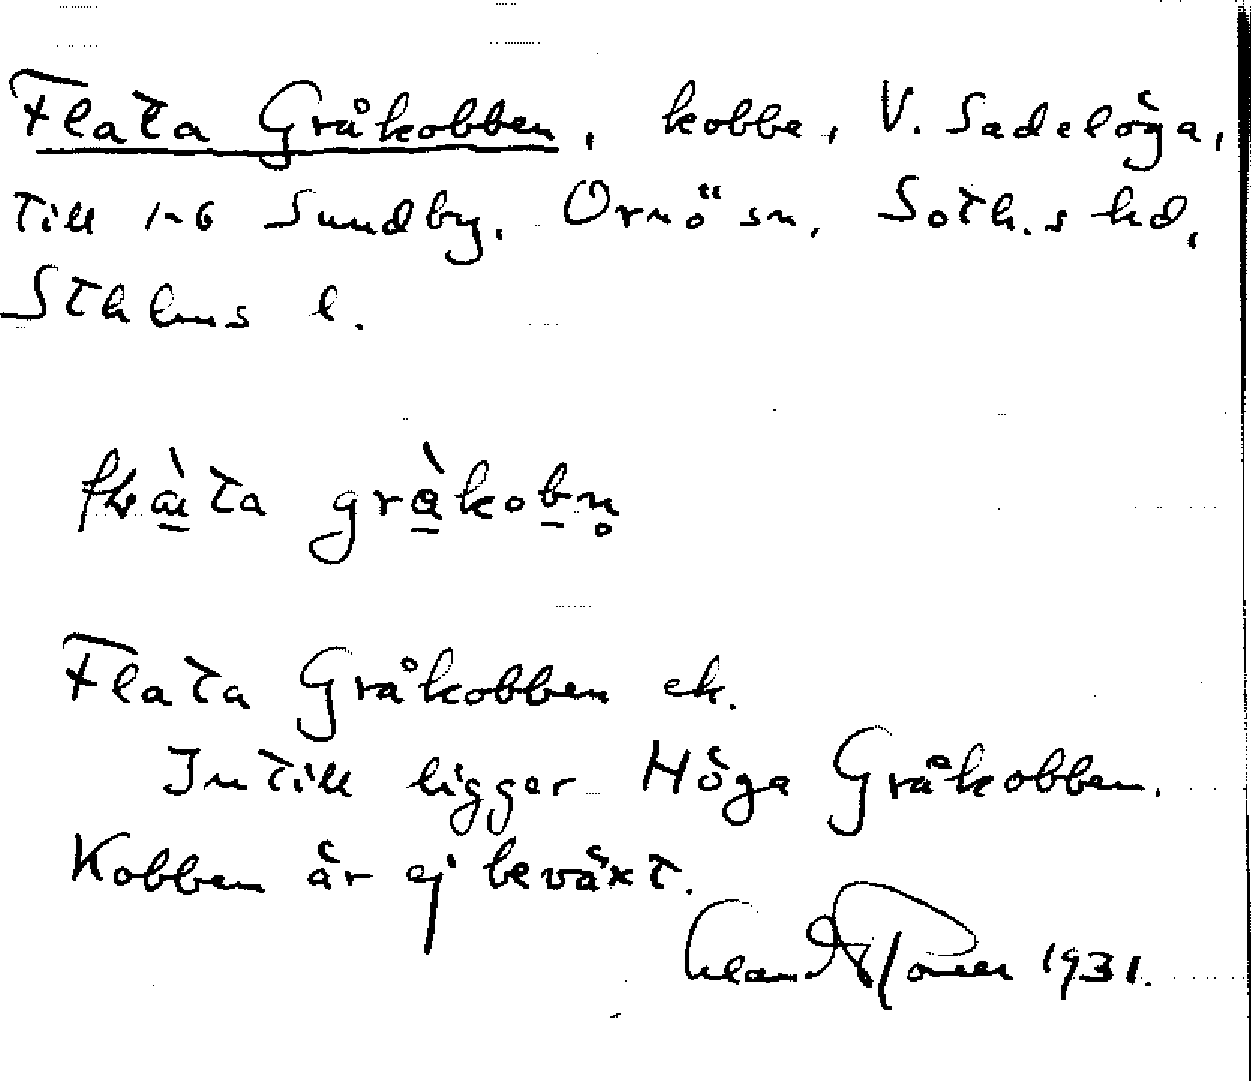 Flata Gråkobben, kobbe, V. Sadelöga,
Till 1-6 Sundby, Ornö sn, Soth.s hd,
Sthlms l.
gràkobn̥
Flata Gråkobben ek.
Intill ligger Höga Gråkobben.
Kobben är ej beväxt.
1931.